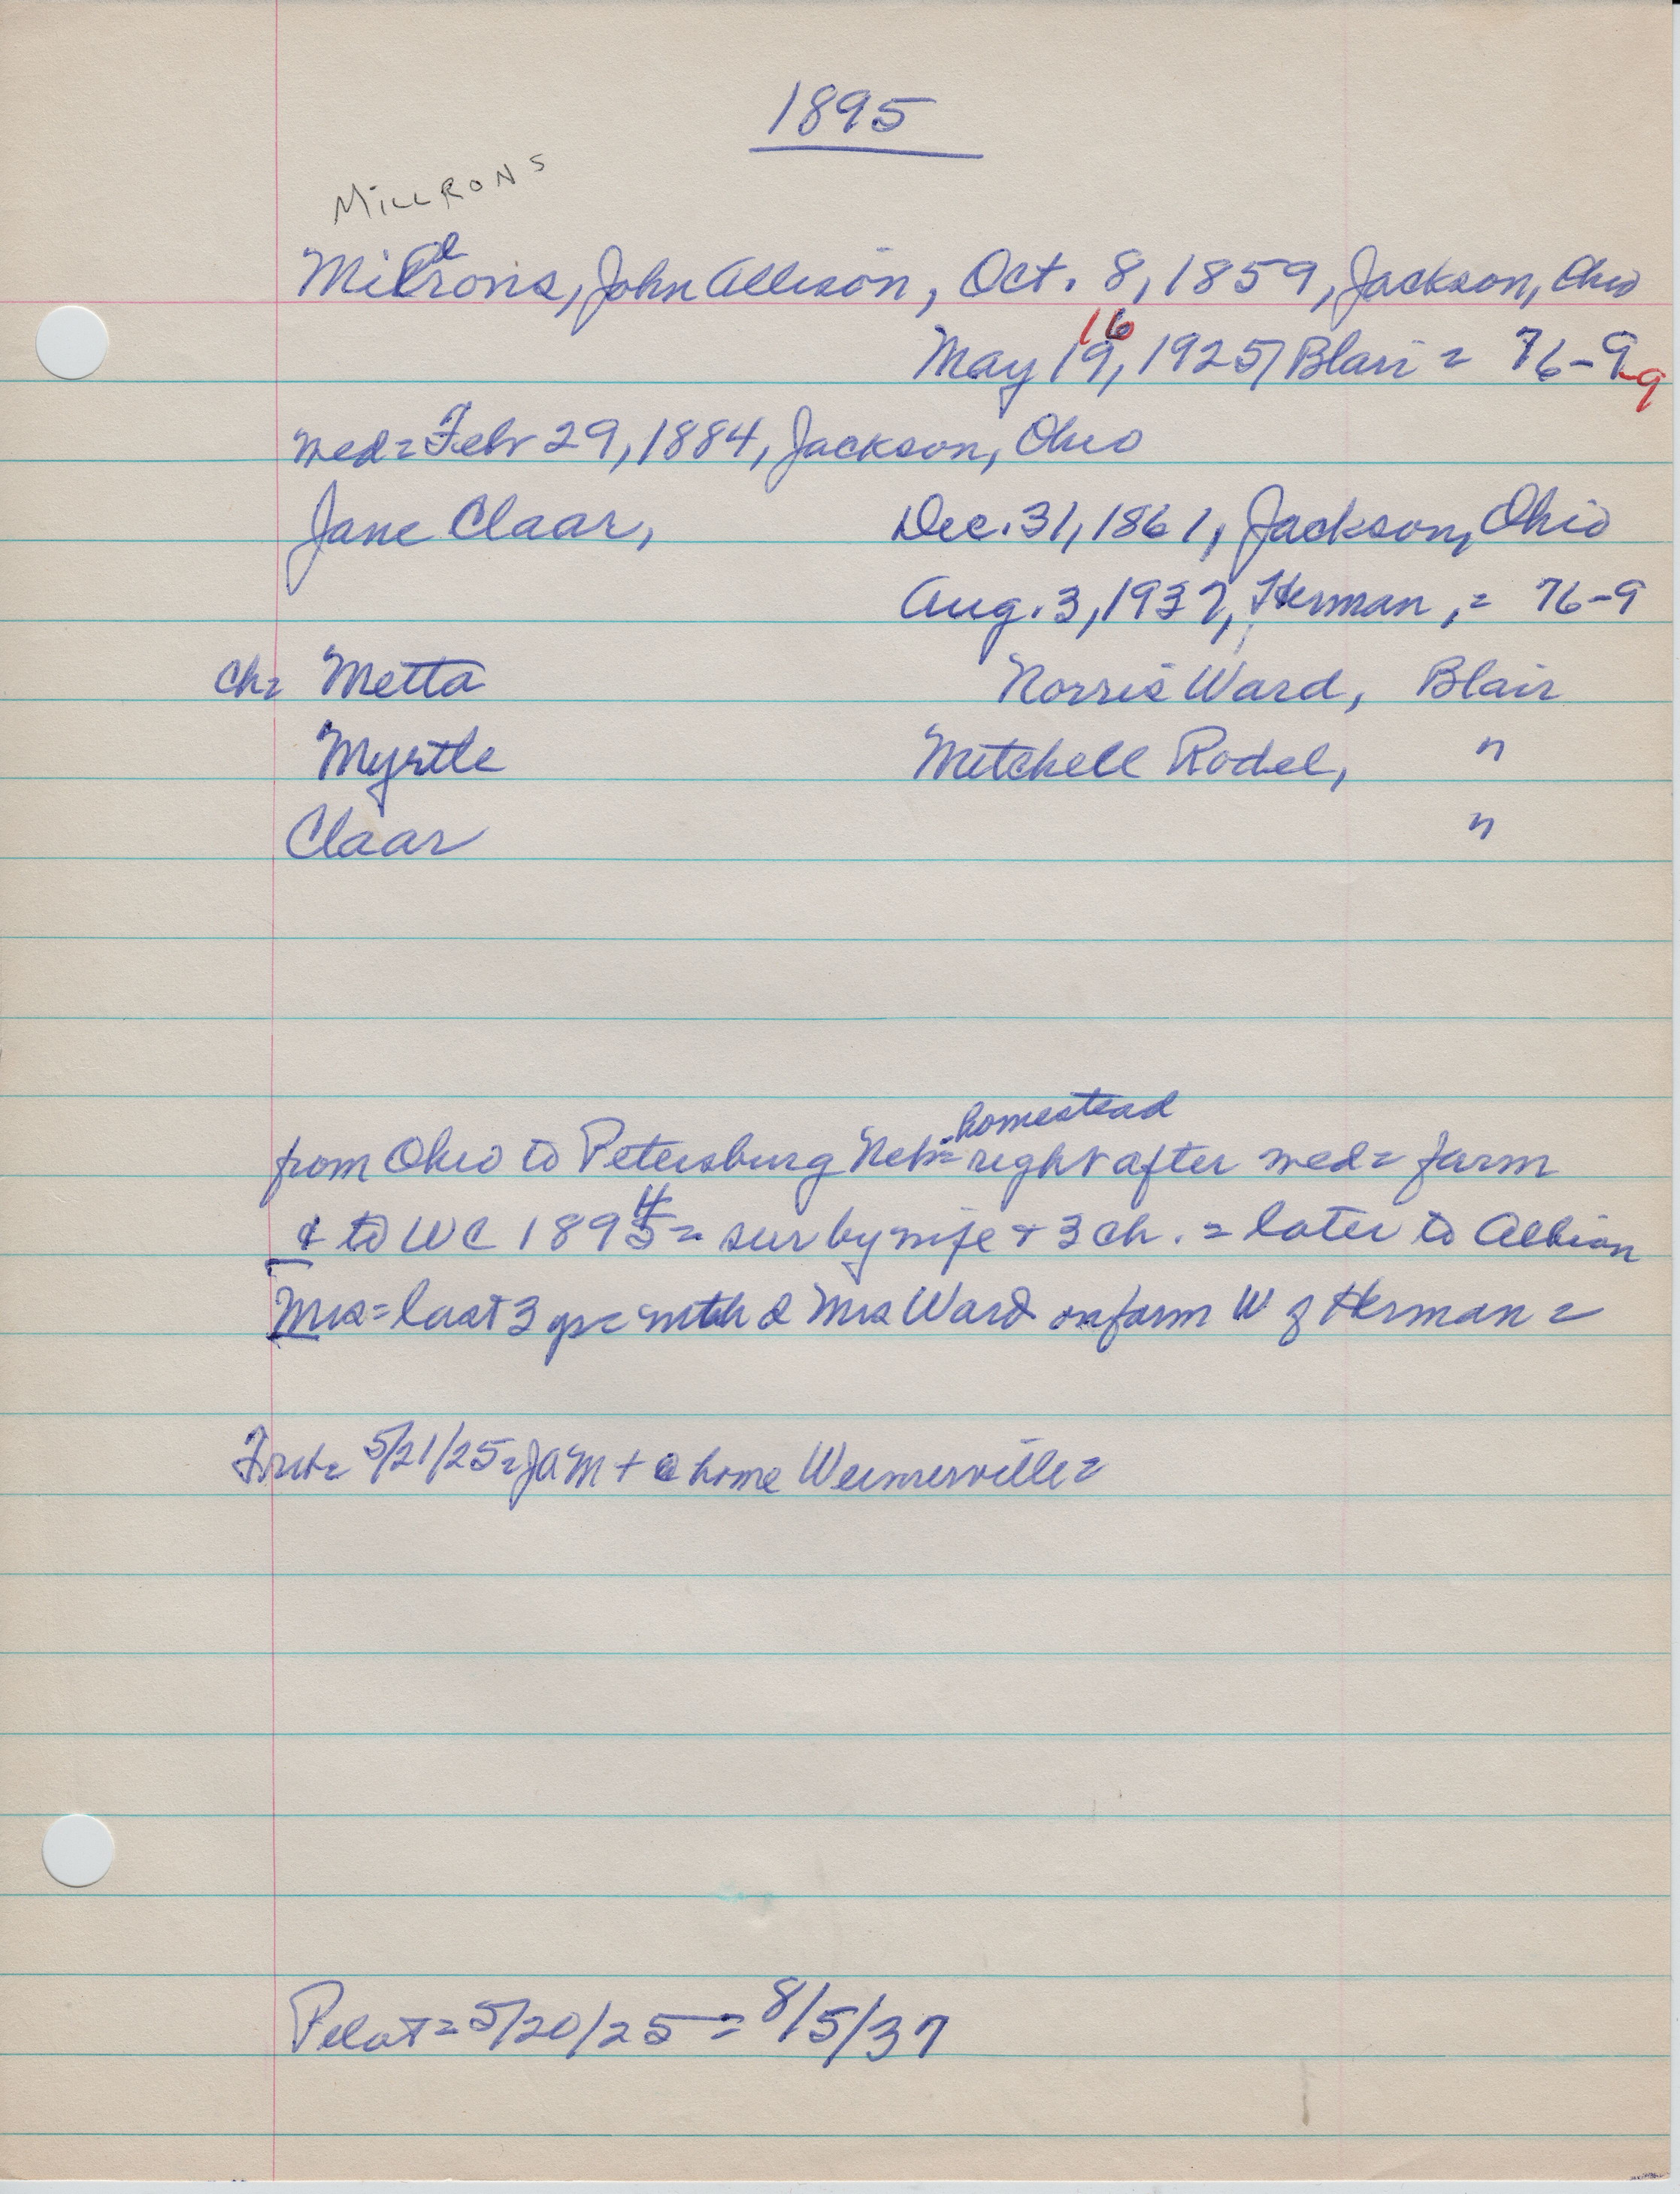 1895
MILLRONS
Millrons, John Allison, Oct. 8, 1859, Jackson, Ohio
16
May 19, 1925, Blair = 76-9-9
wed = Feb 29, 1884, Jackson, Ohio
Jane Claar, Dec. 31, 1861, Jackson, Ohio
Aug. 3, 1937, Herman, = 76-9
Ch= Metta Norris Ward, Blair
Myrtle Mitchell Rodel, "
Claar "
homestead
from Ohio to Petersburg Neb = right after wed = farm
& to WC 1894 = sur by wife + 3 ch. = later to Albion
Mrs = last 3 yrs with d Mrs Ward on farm W of Herman =
5/21/25 = JAM + home
Pilot = 5/20/25 = 8/5/37